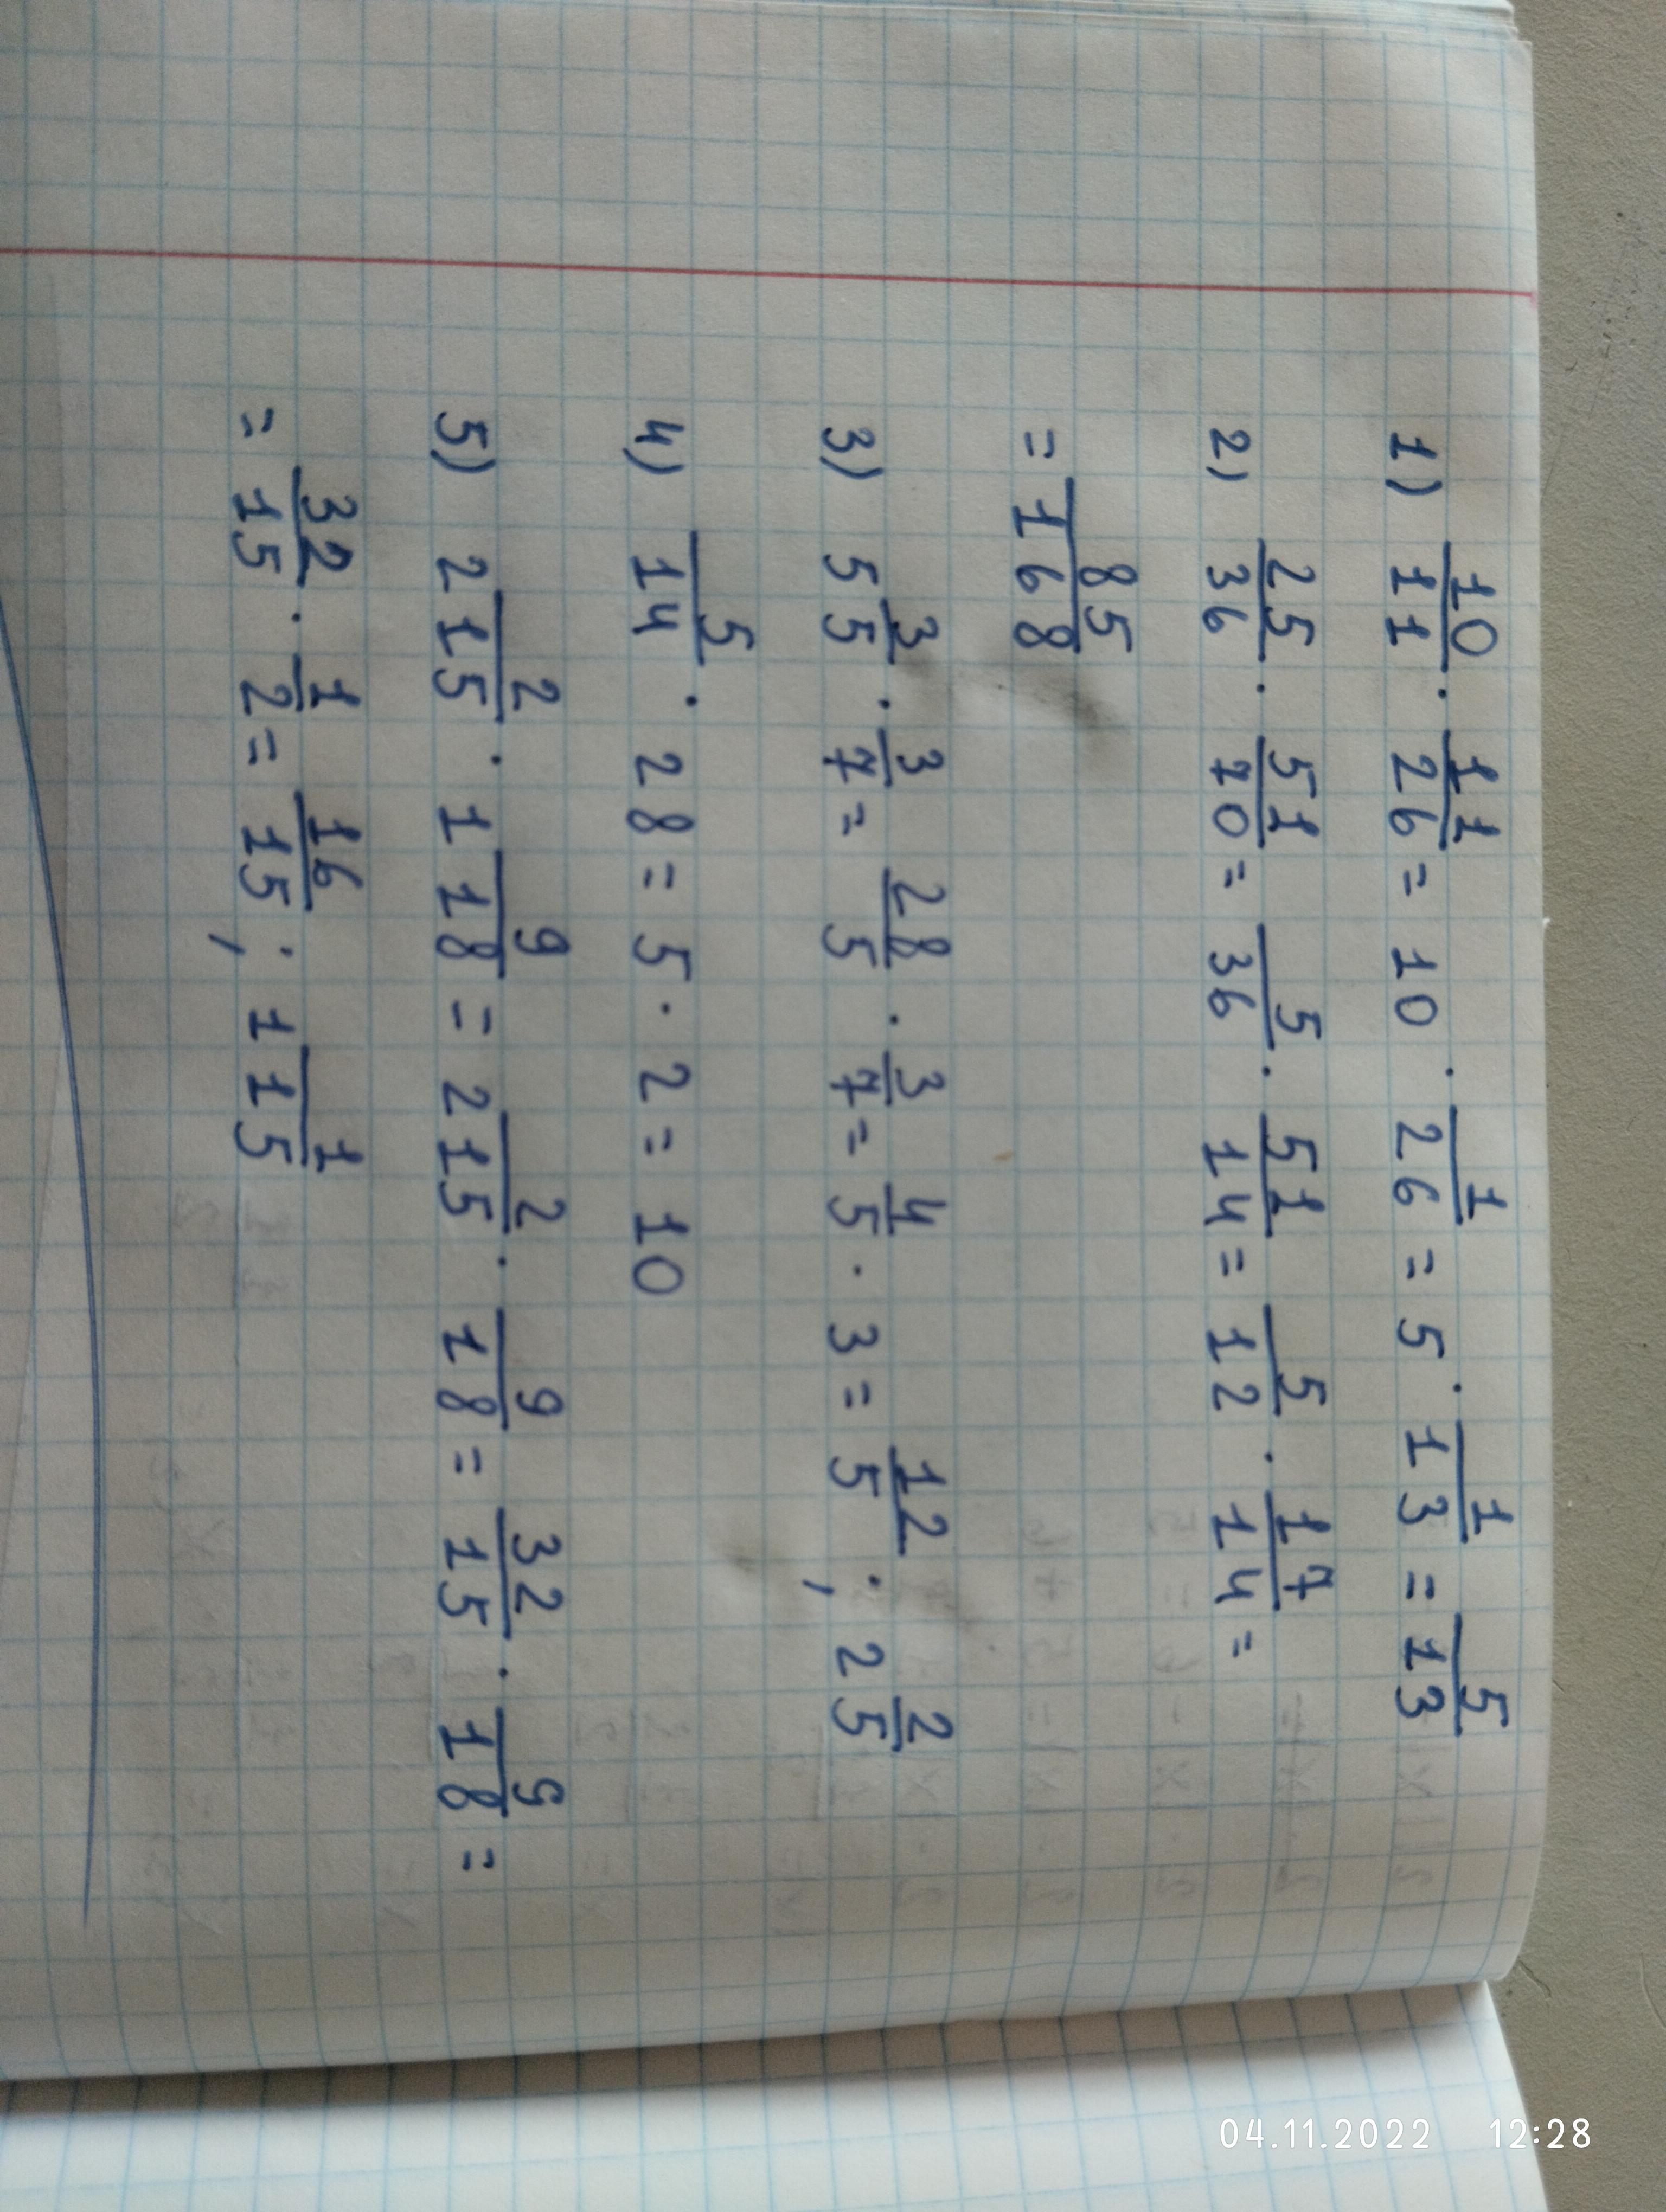 1) 10/11 · 11/26 = 10 · 1/26 = 5 · 1/13 = 5/13
2) 25/36 · 51/70 = 5/36 · 51/14 = 5/12 · 17/14 =
= 85/168
3) 5 3/5 · 3/7 = 28/5 · 3/7 = 4/5 · 3 = 12/5 ; 2 2/5
4) 5/14 · 28 = 5 · 2 = 10
5) 2 2/15 · 1 9/18 = 2 2/15 · 9/18 = 32/15 · 9/18 =
= 32/15 · 1/2 = 16/15 ; 1 1/15
04.11.2022 12:28